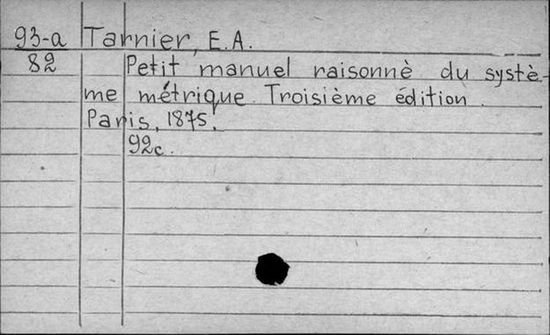 93-a Tarnier, E.A.
82 Petit manuel raisonnè du systè-
me métrique. Troisième édition.
Paris, 1875.
92c.